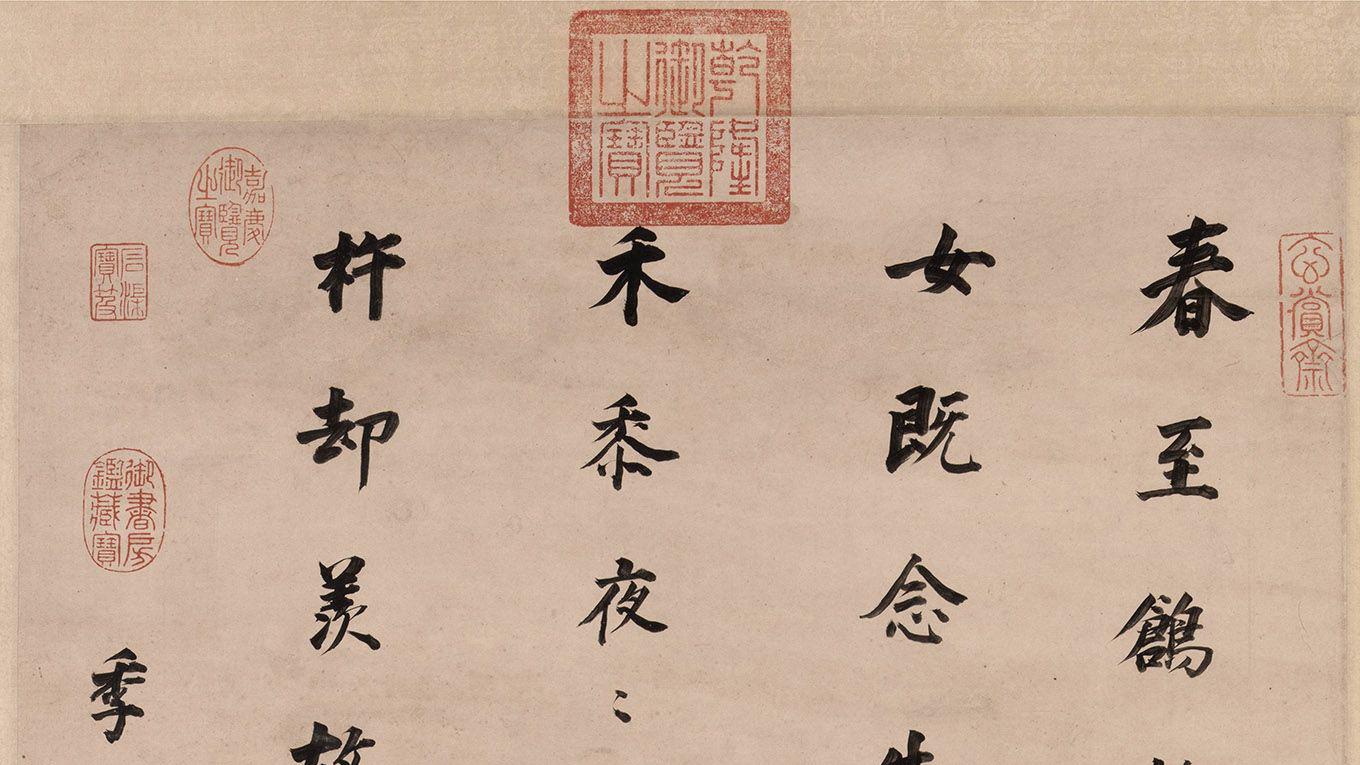 玄賞齋
春至鶬
女既念生
乾隆
御覽
之寶
禾黍夜〻
杵却羨故
嘉慶
御覽
之寶
石渠
寶笈
御書房
鑑藏寶
季